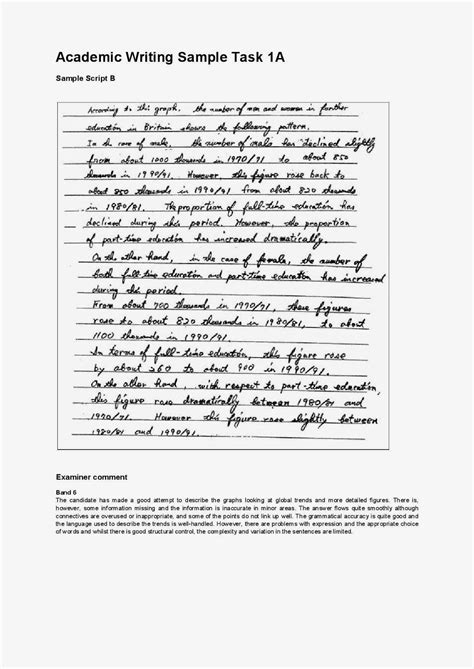 Academic Writing Sample Task 1A
Sample Script B
According to this graph, the number of men and women in further
education in Britain shows the following pattern.
In the case of male, the number of males has declined slightly
from about 1000 thousands in 1970/71 to about 850
thousands in 1990/91. However, this figure rose back to
about 850 thousands in 1990/91 from about 820 thousands
in 1980/81. The proportion of full-time education has
declined during this period. However, the proportion
of part-time education has increased dramatically.
On the other hand, in the case of female, the number of
both full-time education and part-time education has increased
during this period.
From about 700 thousands in 1970/71, these figures
rose to about 820 thousands in 1980/81, to about
1100 thousands in 1990/91.
In terms of full-time education, this figure rose
by about 260 to about 900 in 1990/91.
On the other hand, with respect to part-time education,
this figure rose dramatically between 1980/81 and
1970/71. However this figure rose slightly between
1980/81 and 1990/91.
Examiner comment
Band 6
The candidate has made a good attempt to describe the graphs looking at global trends and more detailed figures. There is,
however, some information missing and the information is inaccurate in minor areas. The answer flows quite smoothly although
connectives are overused or inappropriate, and some of the points do not link up well. The grammatical accuracy is quite good and
the language used to describe the trends is well-handled. However, there are problems with expression and the appropriate choice
of words and whilst there is good structural control, the complexity and variation in the sentences are limited.